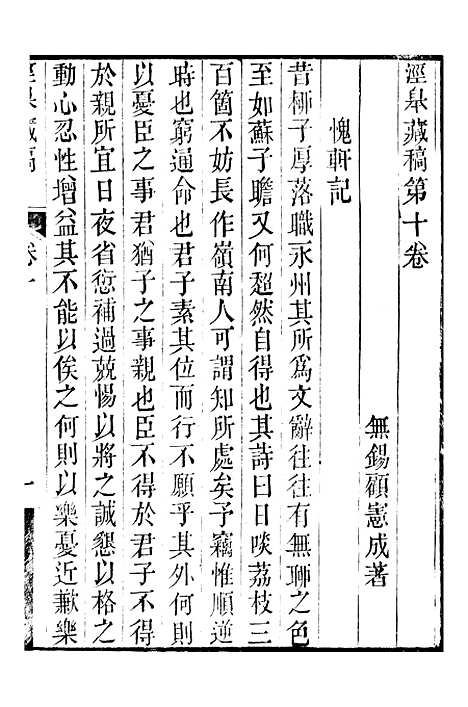 涇臯藏稿第十卷
無錫顧憲成著
愧軒記
昔栁子厚落職永州其所爲文辭往往有無聊之色
至如蘇子瞻又何超然自得也其詩曰日啖荔枝三
百箇不妨長作嶺南人可謂知所處矣予竊惟順逆
時也窮通命也君子素其位而行不願乎其外何則
以憂臣之事君猶子之事親也臣不得於君子不得
於親所宜日夜省愆補過兢惕以將之誠懇以格之
動心忍性增益其不能以俟之何則以樂憂近歉樂
涇臯藏稿
卷十
一